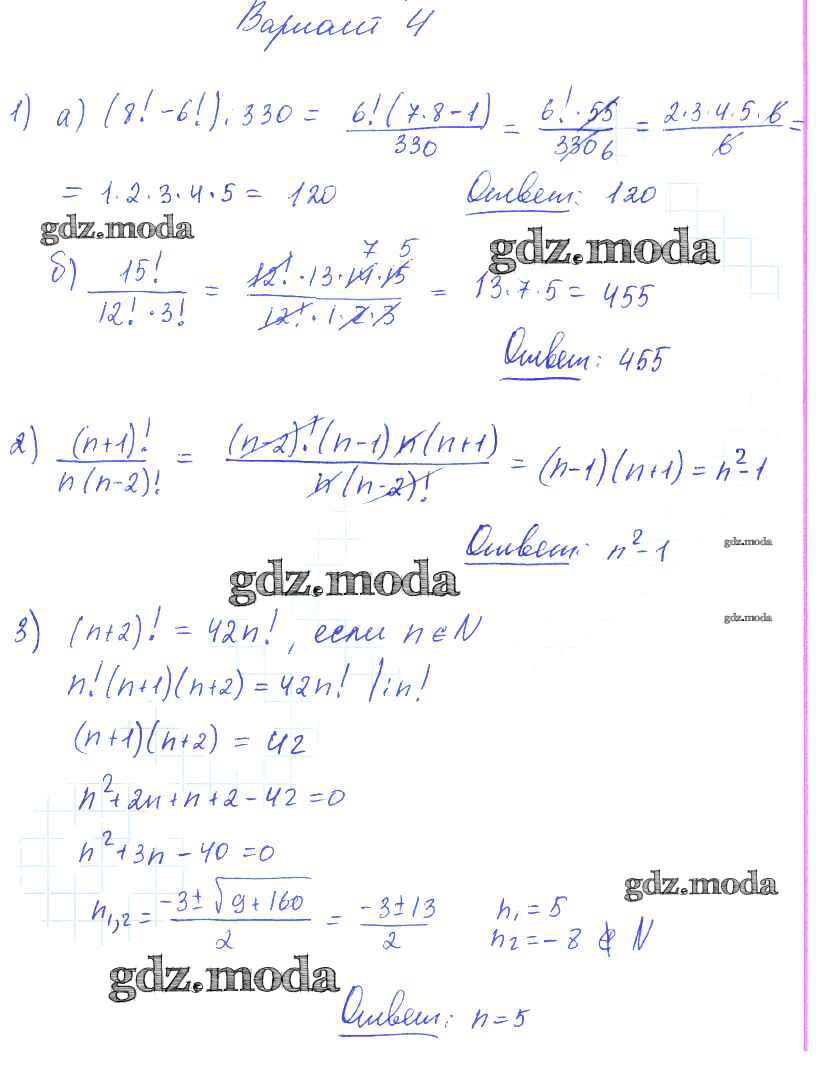 Вариант 4
1) а) (8! - 6!) : 330 = 6!(7·8-1)/330 = 6!·55/330 6 = 2·3·4·5·6/6 =
= 1·2·3·4·5 = 120 Ответ: 120
gdz.moda
gdz.moda
б) 15!/(12!·3!) = 12!·13·14·15/(12!·1·2·3) 7 5 = 13·7·5 = 455
Ответ: 455
2) (n+1)!/(n(n-2)!) = (n-2)!(n-1)n(n+1)/(n(n-2)!) = (n-1)(n+1) = n²-1
Ответ: n²-1
gdz.moda
gdz.moda
gdz.moda
3) (n+2)! = 42n!, если n ∈ N
n!(n+1)(n+2) = 42n! |:n!
(n+1)(n+2) = 42
n²+2n+n+2-42=0
n²+3n-40=0
gdz.moda
n1,2 = (-3±√(9+160))/2 = (-3±13)/2 n1 = 5
n2 = -8 ∉ N
gdz.moda
Ответ: n=5